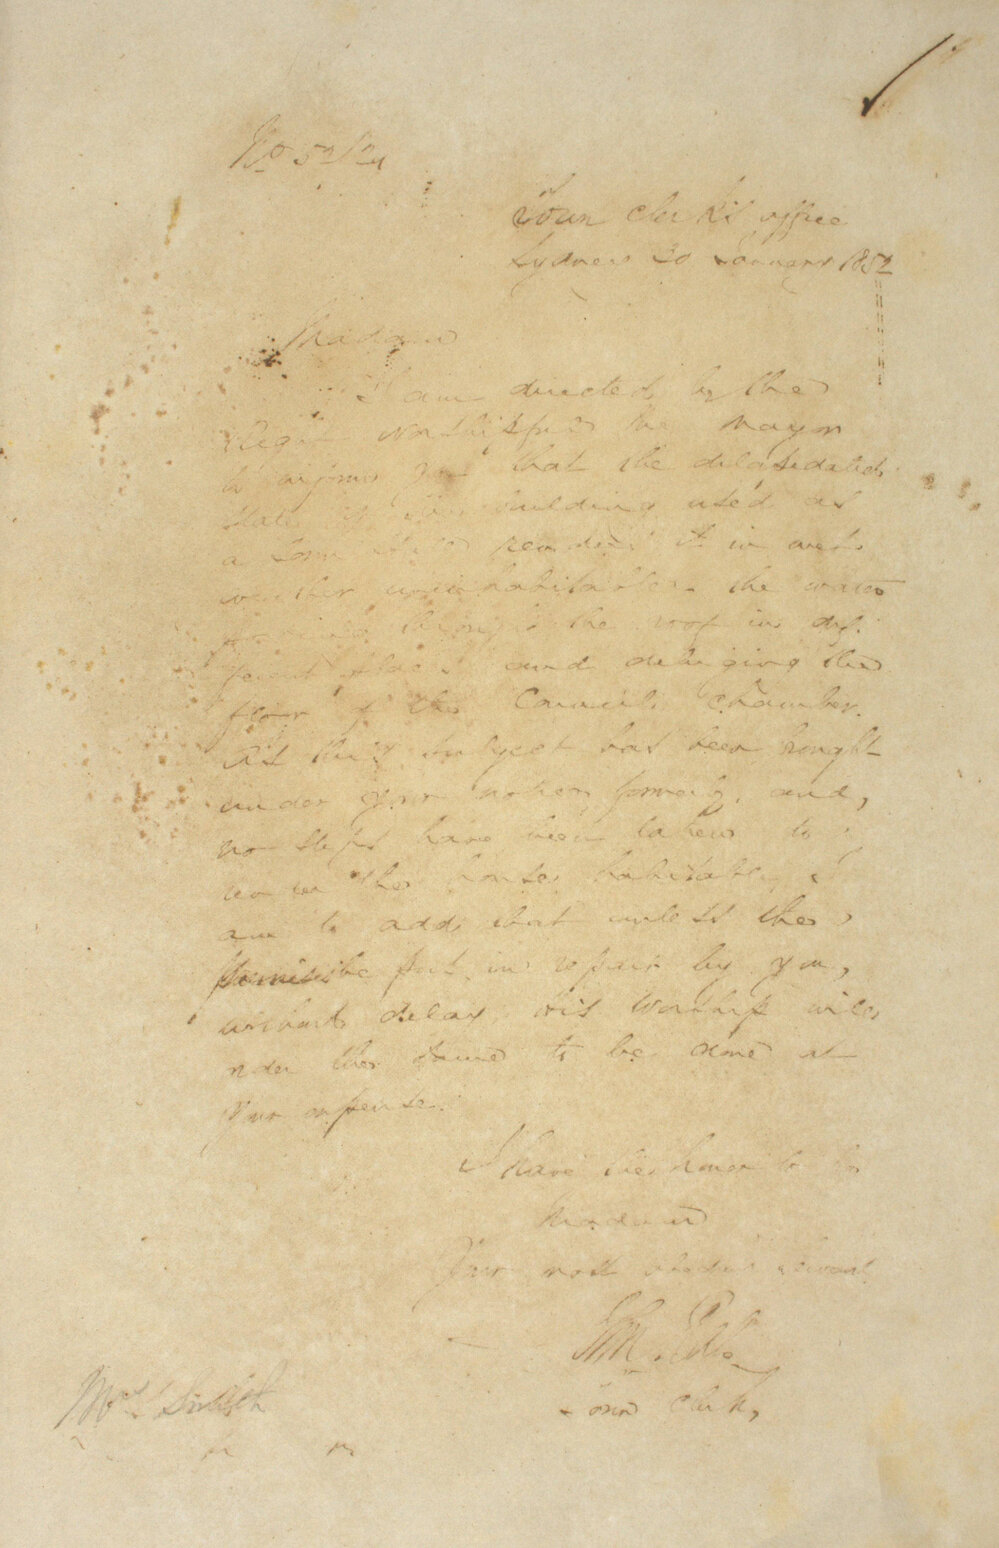 No 52/52
Town Clerk's office
Sydney 20 January 1852
Madam
I am directed by the
Right Worshipful the Mayor
to inform you that the dilapidated
state of the building used as
a Town Hall renders it in wet
weather uninhabitable. the water
through the roof in dif:
ferent places and deluging the
floor of the Council Chamber.
As this subject has been brought
under your notice formerly, and,
no steps have been taken to
render the house habitable, I
am to add, that unless the
premises be put in repair by you,
without delay, His Worship will
order the same to be done at
your expense.
I have the honor to be
Madam
Your most obedient servant
Town Clerk,
Mrs